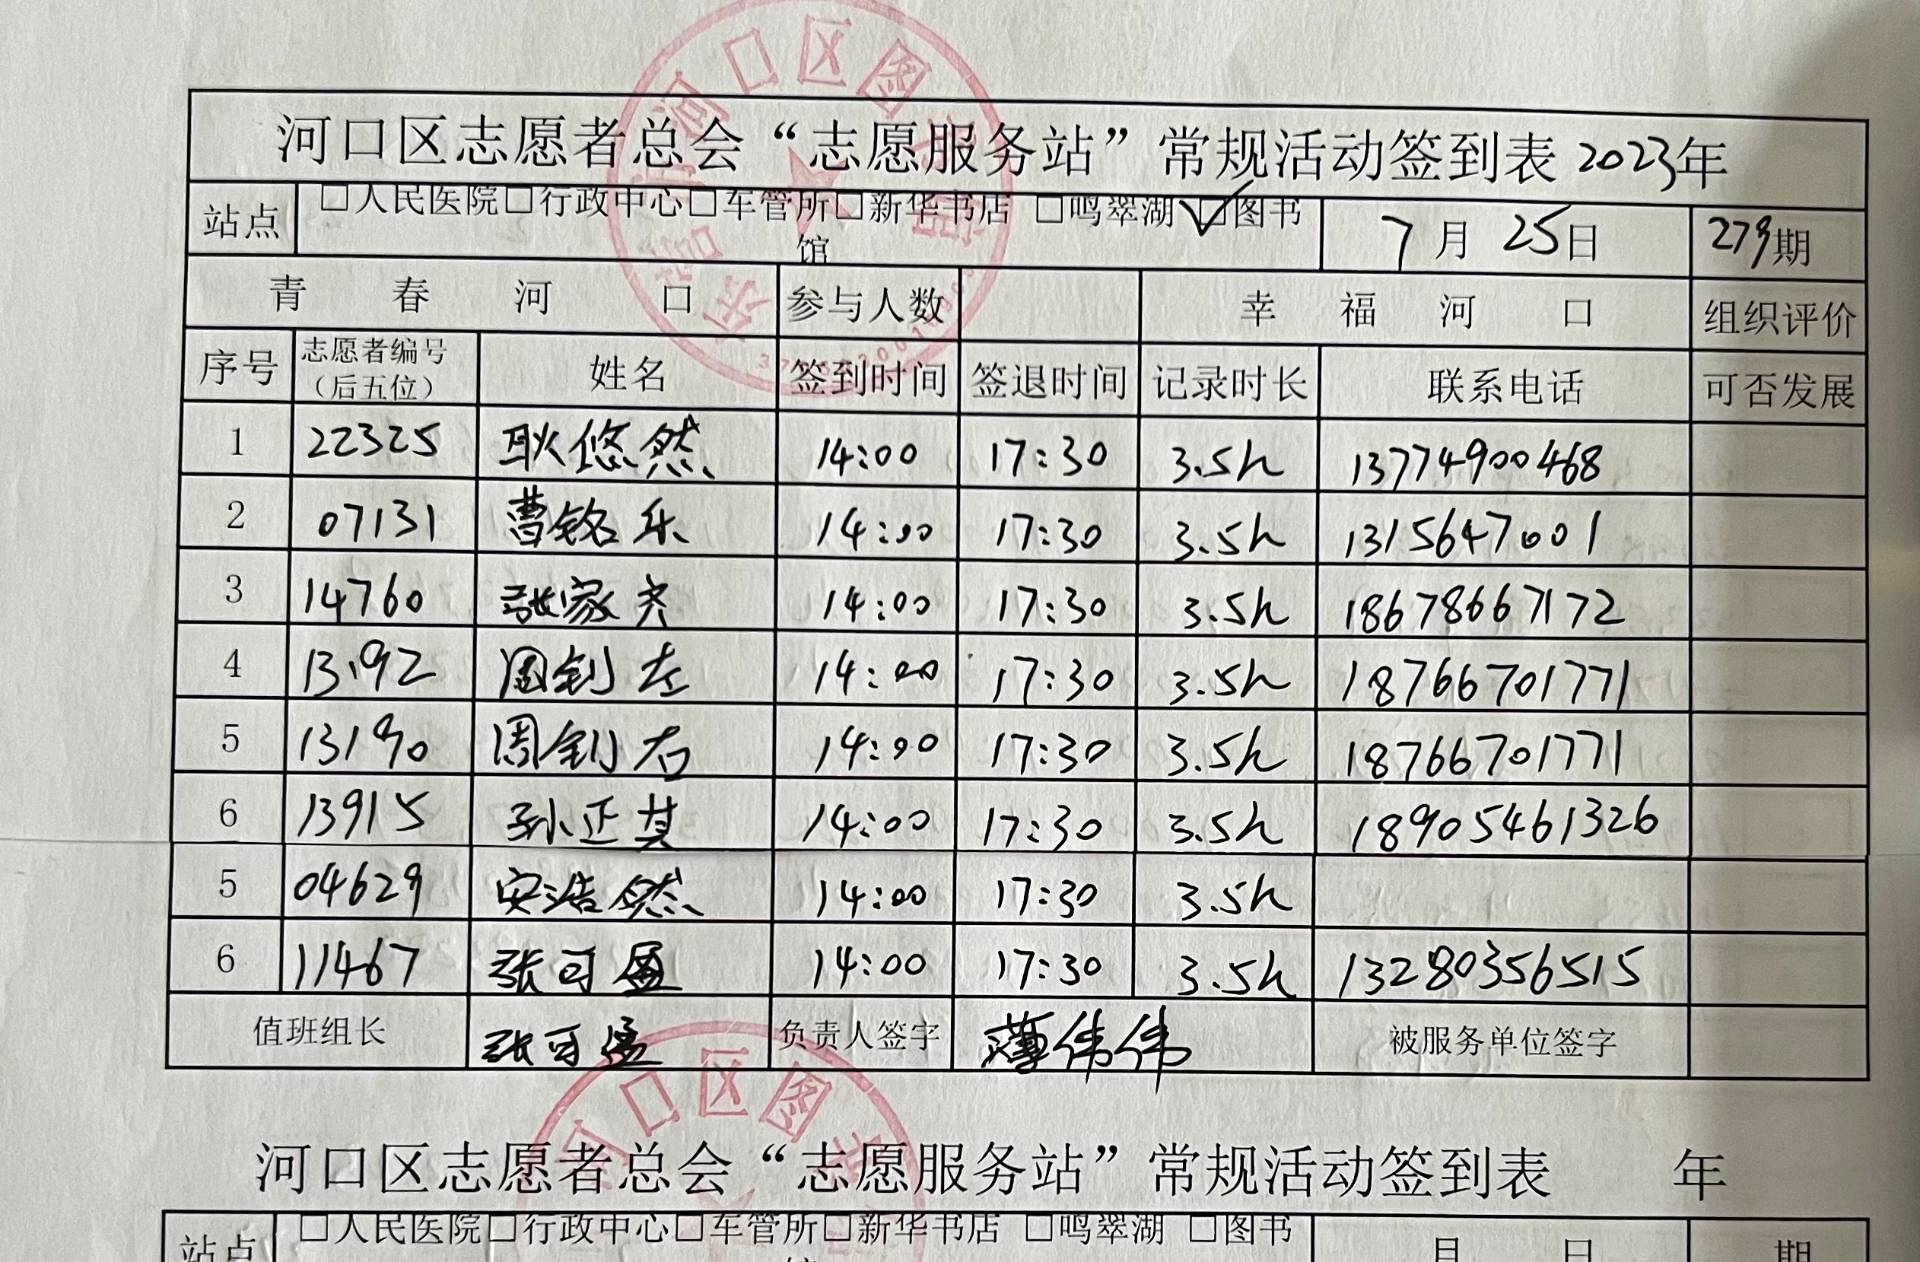 河口区志愿者总会“志愿服务站”常规活动签到表 2023年
站点 □人民医院□行政中心□车管所□新华书店 □鸣翠湖 ☑图书馆 7月25日 279期
青春河口 参与人数 幸福河口 组织评价
序号 志愿者编号（后五位） 姓名 签到时间 签退时间 记录时长 联系电话 可否发展
1 22325 耿悠然 14:00 17:30 3.5h 13774900468
2 07131 曹铭乐 14:00 17:30 3.5h 1315647001
3 14760 张家齐 14:00 17:30 3.5h 18678667172
4 13192 周钊左 14:00 17:30 3.5h 18766701771
5 13190 周钊右 14:00 17:30 3.5h 18766701771
6 13915 孙正其 14:00 17:30 3.5h 18905461326
5 04629 安浩然 14:00 17:30 3.5h
6 11467 张可盈 14:00 17:30 3.5h 13280356515
值班组长 张可盈 负责人签字 薄伟伟 被服务单位签字
河口区志愿者总会“志愿服务站”常规活动签到表 年
站点 □人民医院□行政中心□车管所□新华书店 □鸣翠湖 □图书 月 日 期
河口区图
河口区图